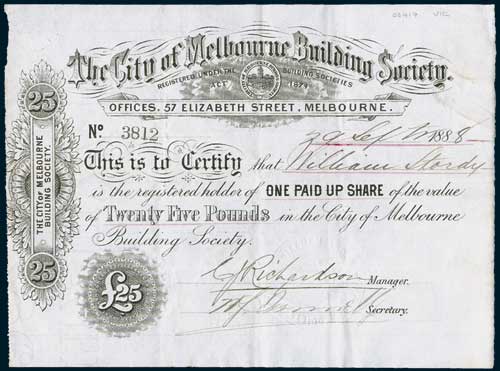 VIC
The City of Melbourne Building Society.
REGISTERED UNDER THE BUILDING SOCIETIES
ACT 1874
OFFICES. 57 ELIZABETH STREET, MELBOURNE.
25
THE CITY OF MELBOURNE
BUILDING SOCIETY.
25
No 3812
29 Sept 1888
This is to Certify that William
is the registered holder of ONE PAID UP SHARE of the value
of Twenty Five Pounds in the City of Melbourne
Building Society.
£25
Richardson Manager.
Secretary.